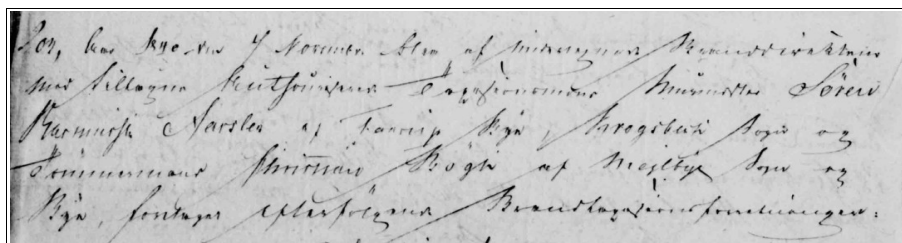 Aar 1890 den 7 November blev af undertegnede Branddirekteur
med tillagte Authoriserede Taxasionsmænd Murmester Sören
Rasmussen Aarslev af Faarup Bye, Krogsbech Sogn og
Tömmermand Christian Bögh af Mejlbye Sogn og
Bye, foretaget efterfölgende Brandtaxasionsforretninger: